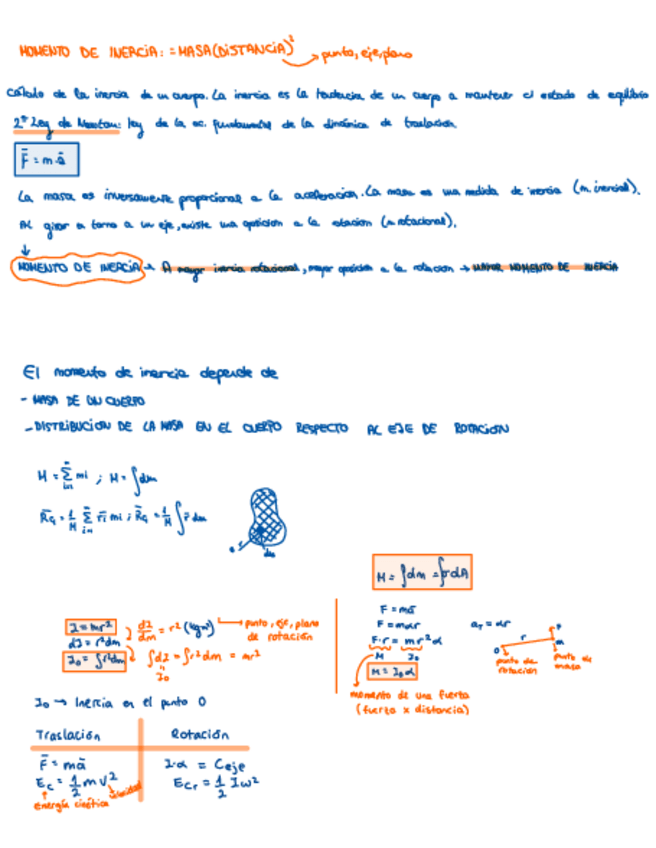 MOMENTO DE INERCIA: = MASA(DISTANCIA)² → punto, eje, plano
Cálculo de la inercia de un cuerpo. La inercia es la tendencia de un cuerpo a mantener el estado de equilibrio
2ª Ley de Newton: ley de la ec. fundamental de la dinámica de traslación
F̄ = m·ā
La masa es inversamente proporcional a la aceleración. La masa es una medida de inercia (m. inercial).
Al girar en torno a un eje, existe una oposición a la rotación (m. rotacional).
↓
MOMENTO DE INERCIA → A mayor inercia rotacional, mayor oposición a la rotación → MAYOR MOMENTO DE INERCIA
El momento de inercia depende de
- MASA DE UN CUERPO
- DISTRIBUCIÓN DE LA MASA EN EL CUERPO RESPECTO AL EJE DE ROTACIÓN
M = Σ mi ; M = ∫dm
R̄G = 1/M Σ r̄i mi ; R̄G = 1/M ∫ r̄ dm
M = ∫dm = ∫σdA
I = mr²
dI = r²dm
I₀ = ∫r²dm
dI/dm = r² (kgm²) → punto, eje, plano de rotación
∫dI = ∫r²dm = mr²
I₀
F = mā
F = mαr
F·r = mr²α
M I₀
M = I₀α
momento de una fuerza
(fuerza x distancia)
aT = αr
O r F m
punto de rotación
punto de masa
I₀ → Inercia en el punto O
Traslación Rotación
F̄ = mā I·α = Ceje
Ec = 1/2 m v² Ecr = 1/2 Iω²
energía cinética velocidad